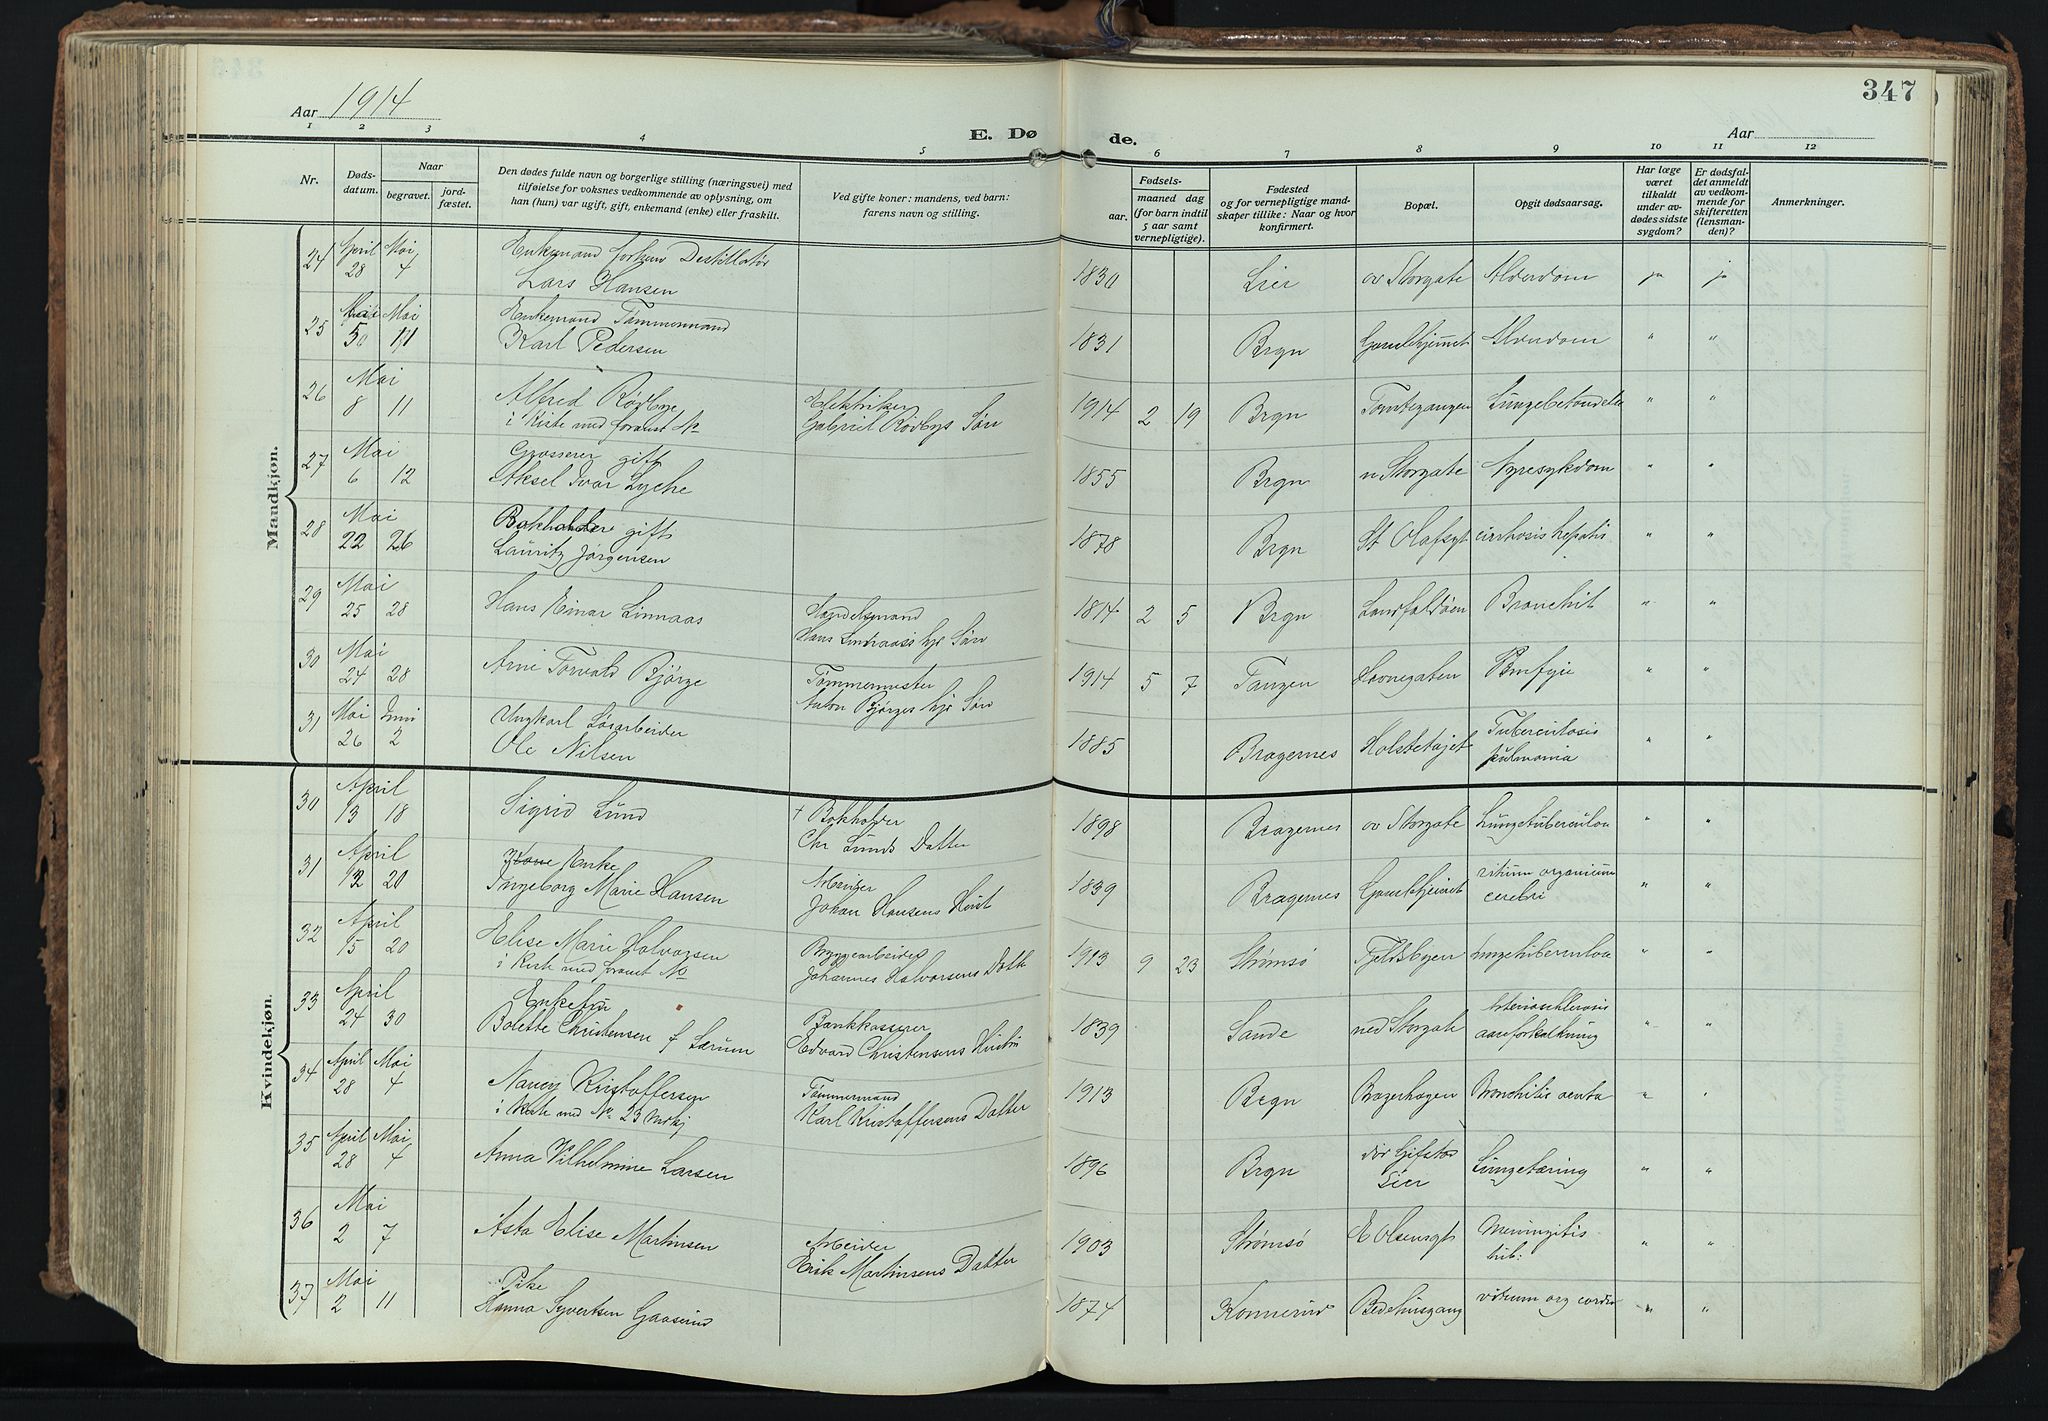 347
Aar 1914
E. Dø
de.
Aar
1 2 3 4 5 6 7 8 9 10 11 12
Nr.
Døds-
datum.
Naar
begravet.
jord-
fæstet.
Den dødes fulde navn og borgerlige stilling (næringsvei) med
tilføielse for voksnes vedkommende av oplysning, om
han (hun) var ugift, gift, enkemand (enke) eller fraskilt.
Ved gifte koner: mandens, ved barn:
farens navn og stilling.
Fødsels-
aar. maaned dag
(for barn indtil
5 aar samt
vernepligtige).
Fødested
og for vernepligtige mand-
skaper tillike: Naar og hvor
konfirmert.
Bopæl.
Opgit dødsaarsag.
Har læge
været
tilkaldt
under av-
dødes sidste
sygdom?
Er dødsfal-
det anmeldt
av vedkom-
mende for
skifteretten
(lensman-
den)?
Anmerkninger.
Mandkjøn.
24 April Mai Enkemand forhenv Destillatør
28 4 Lars Hansen 1830 Lier ov Storgate Alderdom ja ja
25 Mai Mai Enkemand Tømmermand
Karl Pedersen 1831 Brgn Gamlehjemmet Alderdom " "
26 Mai Alfred Rødbye Elektriker
8 11 i Kiste med foranst No Gabriel Rødbys Søn 1914 2 19 Brgn Tomtegangen Lungebetændelse " "
27 Mai Grosserer gift
6 12 Aksel Ivar Lyche 1855 Brgn n Storgate Nyresykdom " "
28 Mai Bokholder gift
22 26 Lauritz Jørgensen 1878 Brgn St Olafsgt cirrhosis hepatis " "
29 Mai Hans Einar Linnaas Handelsmand
25 28 Hans Linnaas's Søn 1814 2 5 Brgn Landfaldøen Bronchit " "
30 Mai Arne Torvald Bjørge Tømmermester
24 28 Anton Bjørges Søn 1914 5 7 Tangen Havnegaten " "
31 Mai Juni Ungkarl Løsarbeider
26 2 Ole Nilsen 1885 Bragernes Tuberculosis pulmonia " "
Kvindekjøn.
30 April Sigrid Lund + Bokholder
13 18 Chr Lunds Datter 1898 Bragernes ov Storgate Lungetuberculose " "
31 April Kone Enke Arbeider
12 20 Ingeborg Marie Hansen Johan Hansens 1839 Bragernes Gamlehjemmet vitium organicum cerebri " "
32 April Elise Marie Halvorsen Bryggearbeider
15 20 i Kiste med foranst No Johannes Halvorsens Datter 1913 9 23 Strømsø Fjeldsbyen Lungetuberculose " "
33 April Enkefru Bankkasserer
24 30 Bolette Christensen f Lærum Edvard Christensens Hustru 1839 Sande ned Storgate Arterioschlerosis aareforkalkning " "
34 April Mai Nancy Kristoffersen Tømmermand
28 4 i Kiste med No 23 Mdkj Karl Kristoffersens Datter 1913 Brgn Bragerhagen Bronchitis acuta " "
35 April Mai Anna Vilhelmine Larsen
28 4 1896 Brgn Lier Lungetæring " "
36 Mai Asta Elise Martinsen Arbeider
2 7 Erik Martinsens Datter 1903 Strømsø E Olsensgt Meningitis tub: " "
37 Mai Pike
2 11 Hanna Syvertsen Gaaserud 1874 Konnerud Bedehusgang vitium org cordis " "